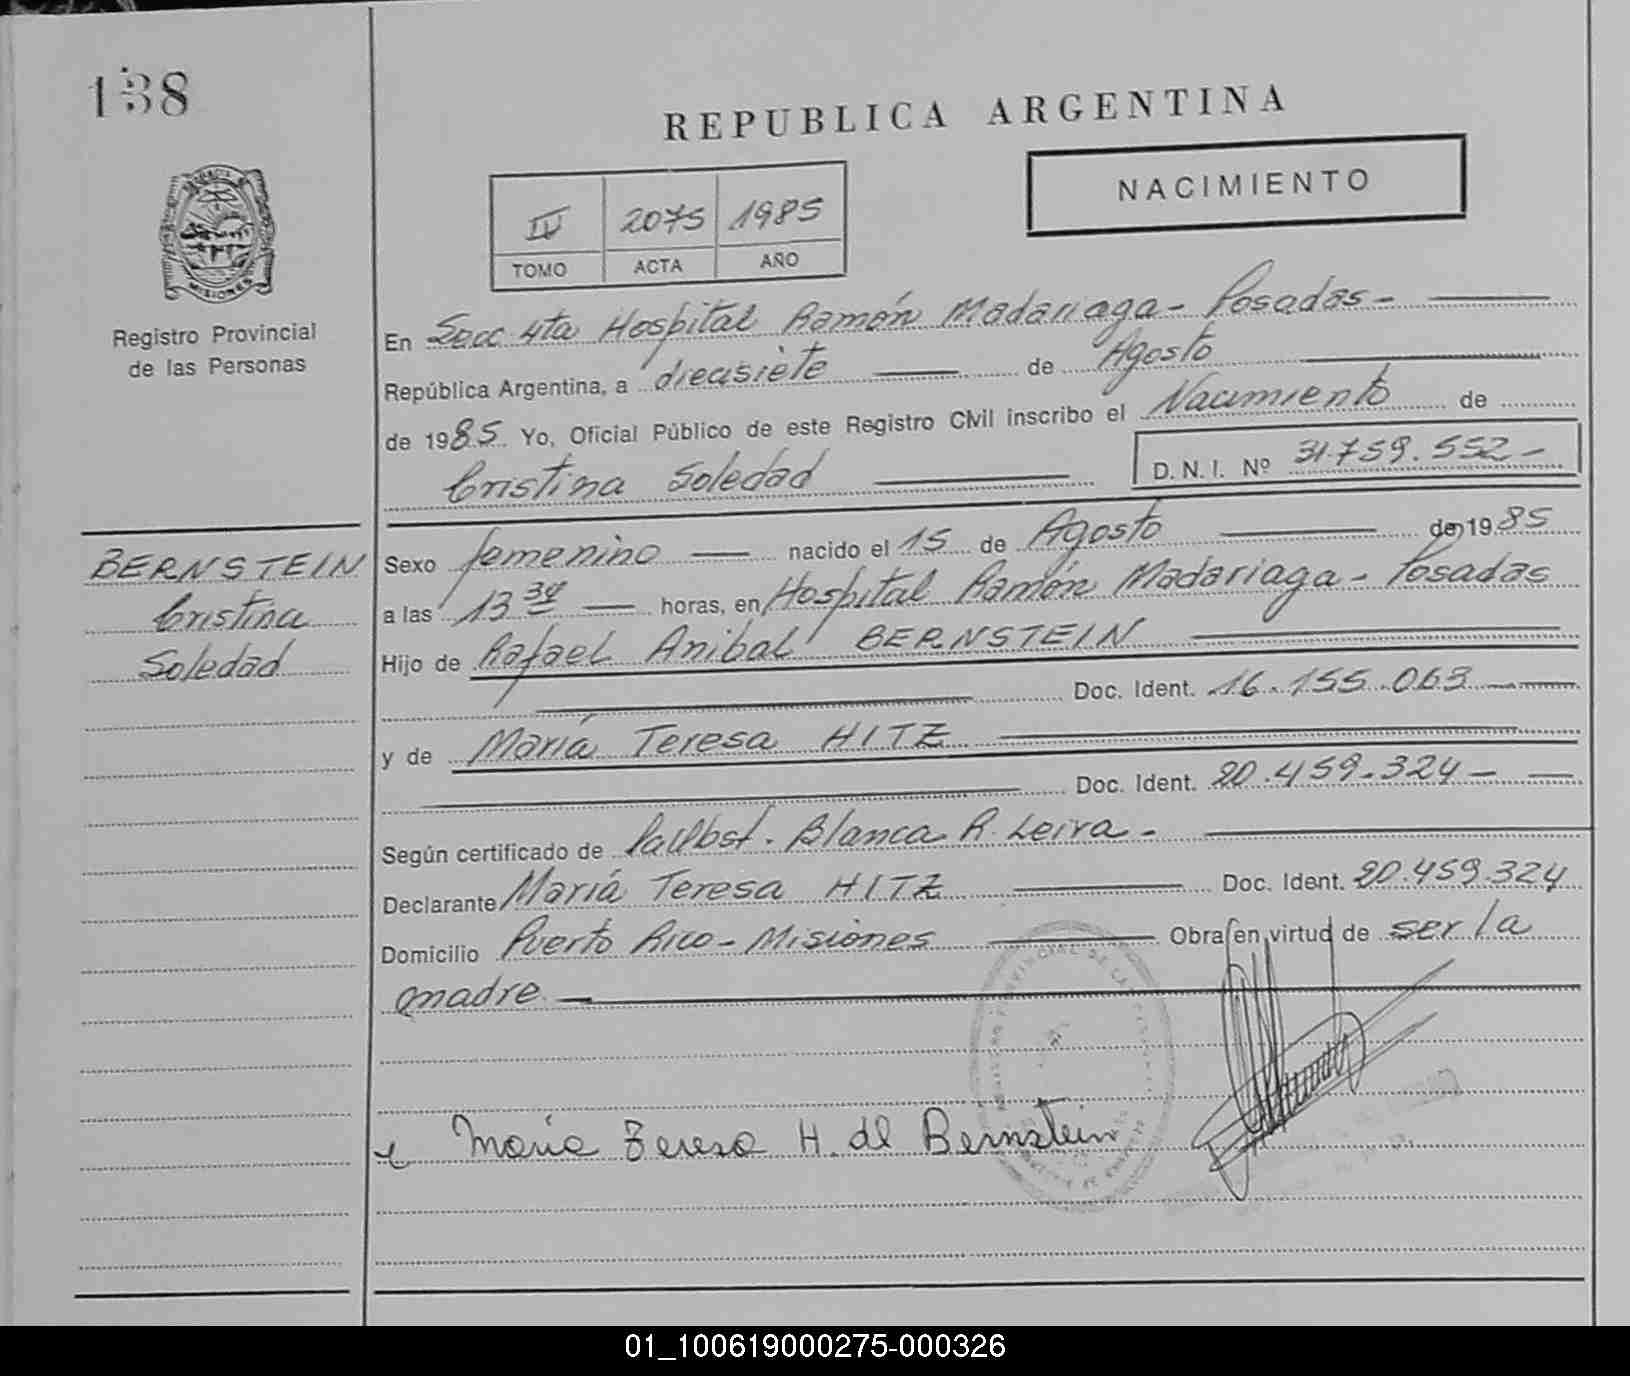 138
REPUBLICA ARGENTINA
NACIMIENTO
IV 2075 1985
TOMO ACTA AÑO
MISIONES
Registro Provincial
de las Personas
En Secc. 4ta Hospital Ramón Madariaga - Posadas -
República Argentina, a diecisiete de Agosto
de 1985. Yo, Oficial Público de este Registro Civil inscribo el Nacimiento de
Cristina Soledad D. N. I. Nº 31.759.552 -
BERNSTEIN
Cristina
Soledad
Sexo femenino nacido el 15 de Agosto de 1985
a las 13 30 horas, en Hospital Ramón Madariaga - Posadas
Hijo de Rafael Anibal BERNSTEIN
Doc. Ident. 16.155.063
y de María Teresa HITZ
Doc. Ident. 20.459.324 -
Según certificado de Blanca R. Leiva -
Declarante María Teresa HITZ Doc. Ident. 20.459.324
Domicilio Puerto Rico - Misiones Obra en virtud de ser la
madre
María Teresa H. de Bernstein
01_100619000275-000326